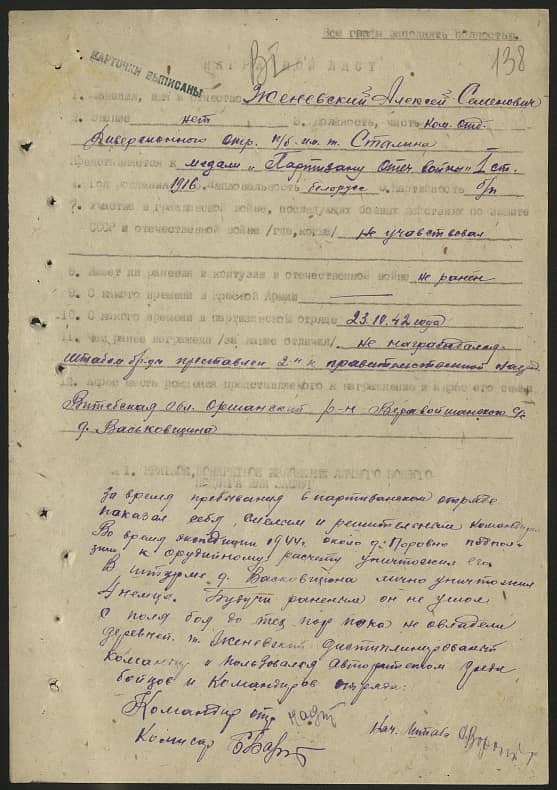 Все графы заполнять полностью.
138
КАРТОЧКИ ВЫПИСАНЫ
НАГРАДНОЙ ЛИСТ
1. Фамилия, имя и отчество Женевский Алексей Семенович
2. Звание нет 3. Должность, часть Ком. отд.
Диверсионного отр. п/б. им. т. Сталина
Представляется к медали „Партизану отеч войны" I ст.
4. Год рождения 1916 5. Национальность белорус 6. Партийность б/п
7. Участие в гражданской войне, последующих боевых действиях по защите
СССР и отечественной войне /где, когда/ не участвовал
8. Имеет ли ранения и контузии в отечественной войне не ранен
9. С какого времени в Красной Армии
10. С какого времени в партизанском отряде 23.10.42 года
11. Чем ранее награжден /за какие отличия/ не награждался
штабом бр-ды преставлен к правительственной наград
12. Адрес места рождения представляемого к награждению и адрес его семьи
Витебская обл. Оршанский р-н
д. Васьковщина
1. КРАТКОЕ, КОНКРЕТНОЕ ИЗЛОЖЕНИЕ ЛИЧНОГО БОЕВОГО
ПОДВИГА ИЛИ ЗАСЛУГ
За время пребывания в партизанском отряде
показал себя, смелым и решительным командиром
Во время экспедиции 1944г. около д.
к орудийному расчету уничтожил его
В штурме д. Васковщина лично уничтожил
4 немца. Будучи раненым он не ушол
с поля боя до тех пор пока не овладели
деревней. т. Женевский дистиплинированый
командир и пользовался авторитетом среди
бойцов и командиров отряда.
Командир отр.
Комисар
Нач. штаба